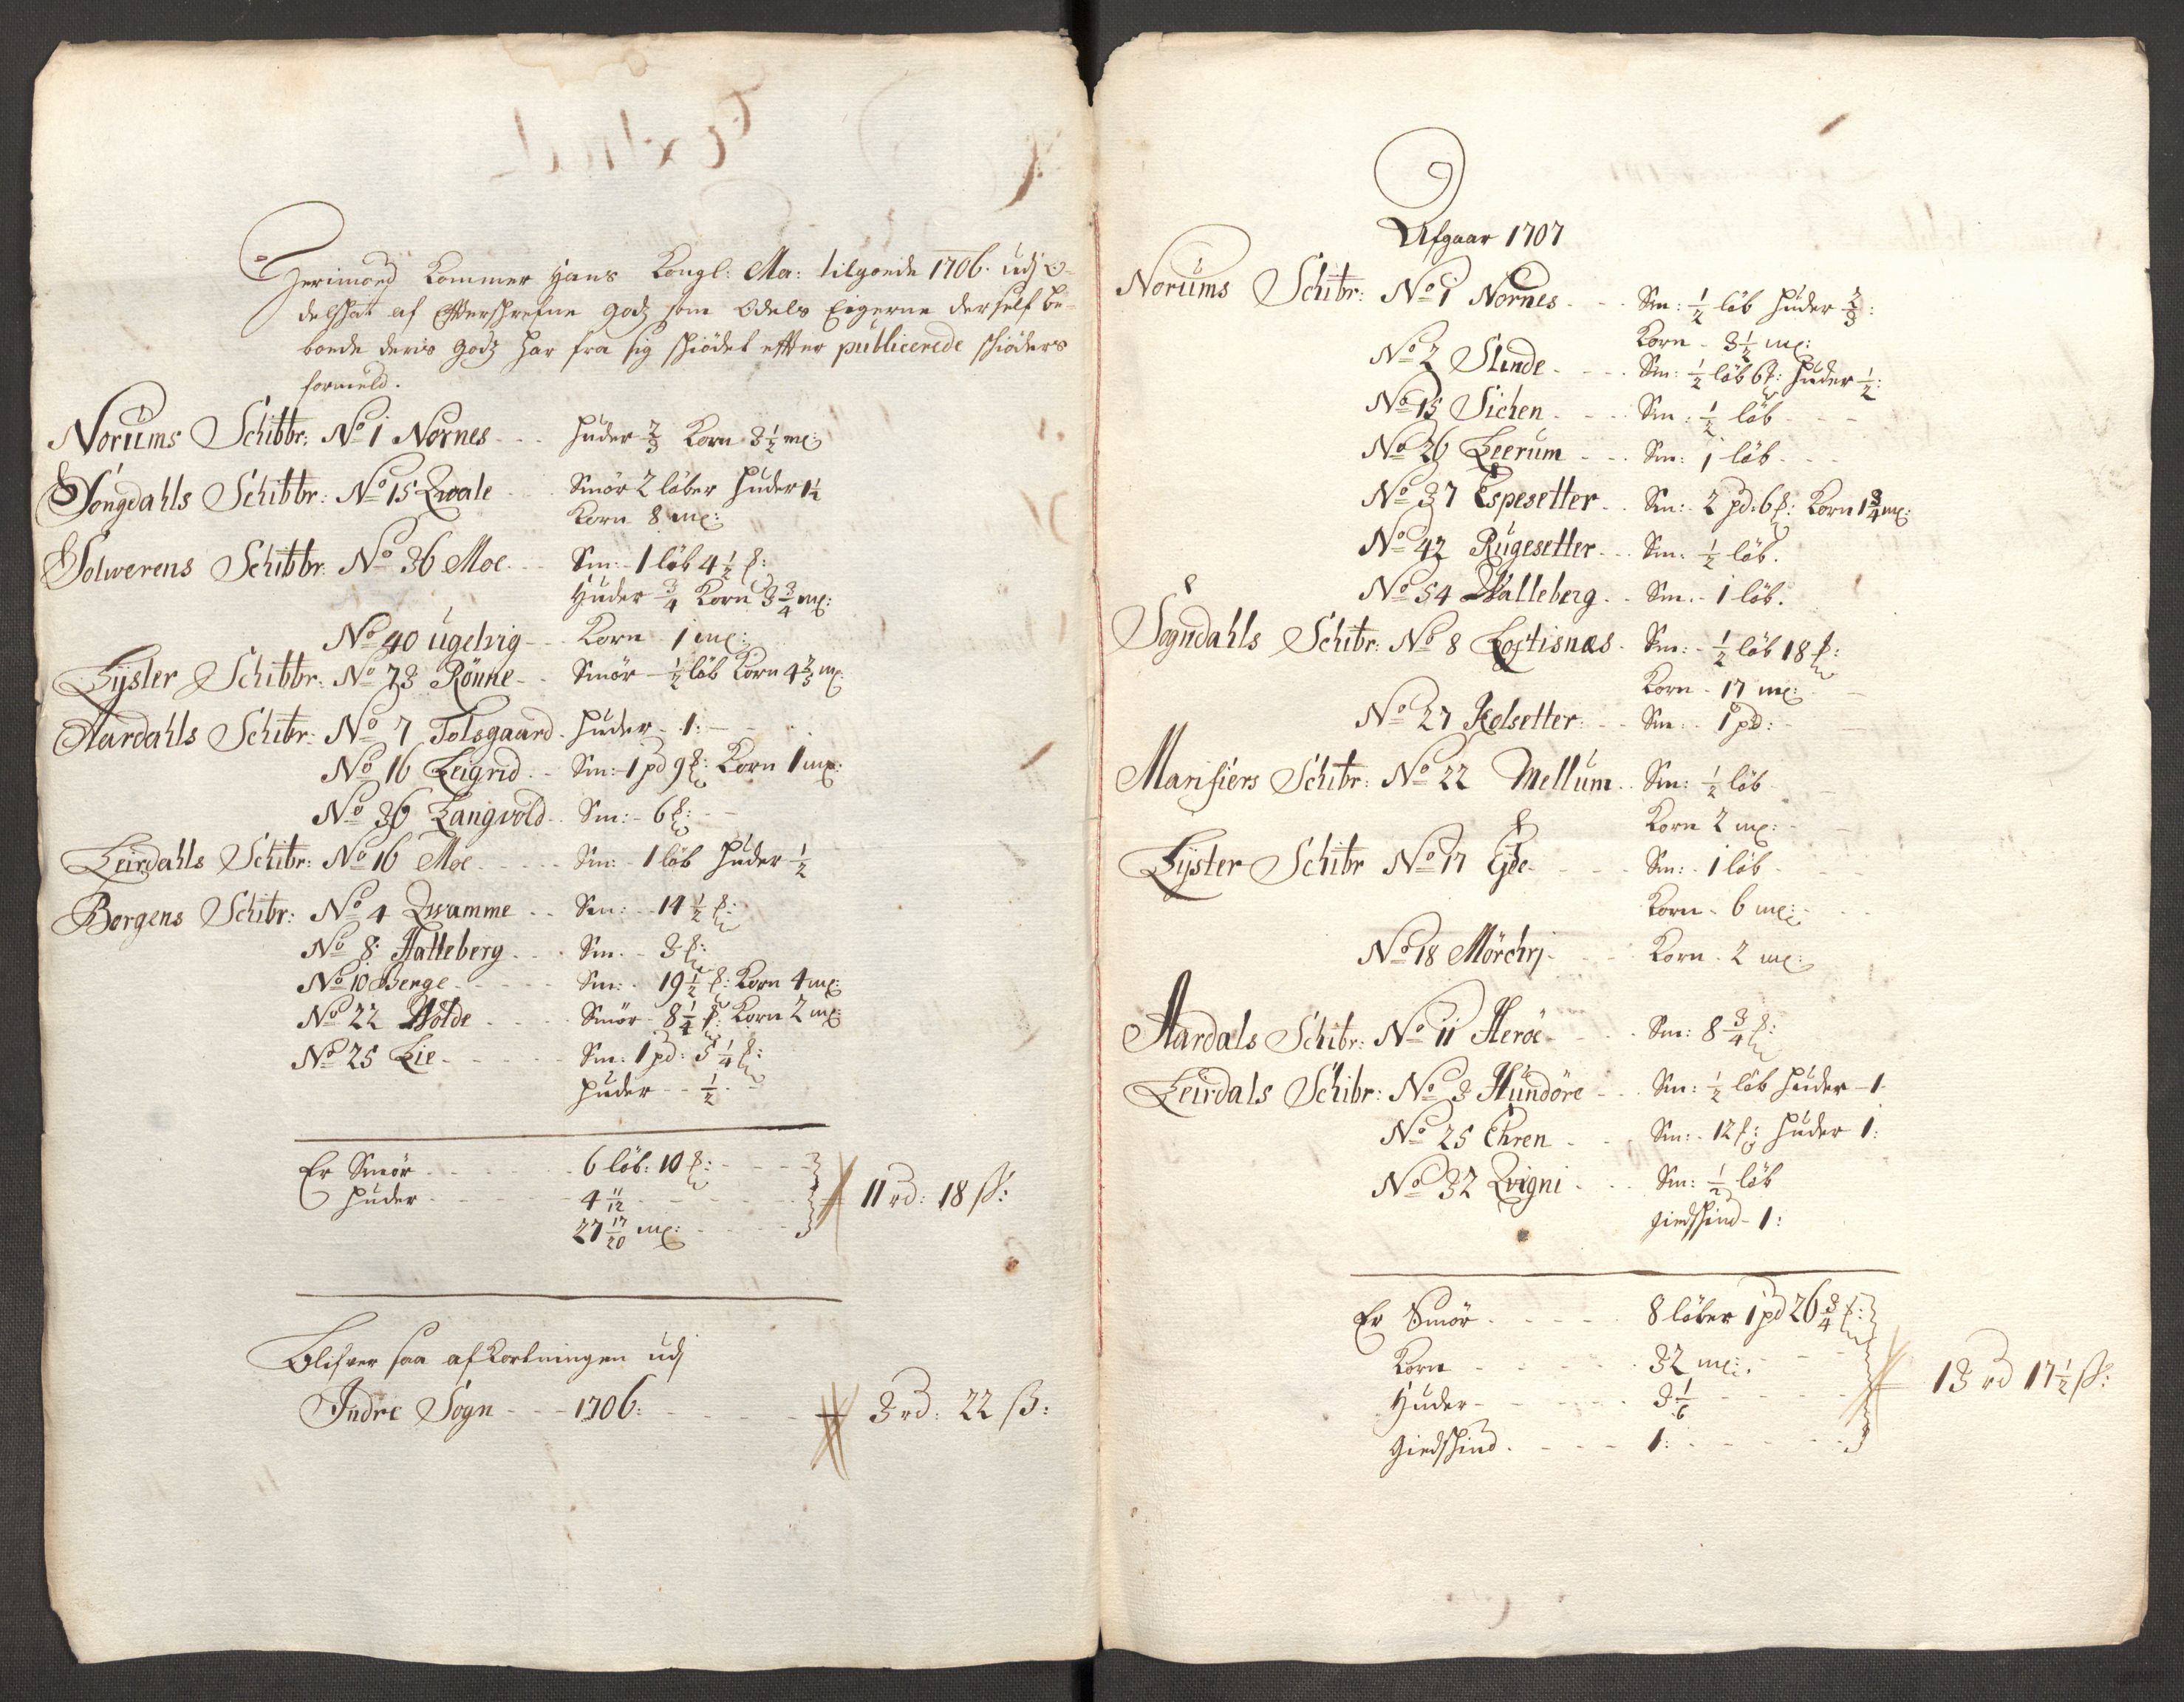 Herimoed Kommer Hans Kongl: Ma: tilgoede 1706. udj O-
delsskat af Effterschrefne godz som Odels Eigerne derself be-
boede deris godz har fra sig skiödet effter publicerede skiöders
formeld.
Norums Schibbr: No 1 Nornes - - - Huder 2/3 Korn 3 1/2 mæ:
Songdahls Schibbr: No 15 Qvale - - - Smör 2 löber Huder 1 1/4
Korn 8 mæ:
Solwerens Schibbr: No 36 Moe - - - Sm: - 1 löb 4 1/2 ℔:
Huder 3/4 Korn 3 3/4 mæ:
No 40 Ugelvig - - - Korn - 1 mæ:
Lyster Schibbr: No 73 Rönne - - Smör - 1/2 löb Korn 4 3/5 mæ:
Aardahls Schibr: No 7 Tolsgaard - Huder - 1: -
No 16 Leigrid - - Sm: - 1 pd 9 ℔: Korn 1 mæ:
No 36 Langvold - - Sm: - 6 ℔: - -
Leirdahls Schibr: No 16 Moe - - - - Sm: - 1 löb Huder 1/2
Borgens Schibr: No 4 Qvamme - - Sm: - - 14 1/2 ℔:
No 8 Hatleberg - - - Sm. - 3 ℔:
No 10 Berge - - - - - Sm: - 19 1/2 ℔: Korn 4 mæ:
No 22 Molde - - - - Smör - 8 1/4 ℔: Korn 2 mæ:
No 25 Lie - - - - - Sm: 1 pd: 5 1/4 ℔:
Huder - - 1/2 - -
Er Smör - - - - - - 6 löb: 10 ℔: - - -
Huder - - - - - - 4 11/12 - - - - - 11 rd: 18 ß:
27 17/20 mæ: - - - -
Blifver saa afkortningen udj
Indre Sogn - - - 1706: - - - - - - 3 rd: 22 ß:
Afgaar 1707
Norums Schibr: No 1 Nornes - - - Sm: 1/2 löb Huder 2/3:
Korn - 3 1/2 mæ:
No 2 Slinde - - - - Sm: 1/2 löb 6 ℔: Huder 1/2:
No 15 Sichen - - - - Sm: 1/2 löb - - -
No 26 Leerum - - - Sm: 1 löb - - -
No 37 Espesetter - - Sm: 2 pd: 6 ℔: Korn 1 3/4 mæ:
No 42 Rugesetter - - - Sm: 1/2 löb.
No 54 Walleberg - - Sm. - 1 löb.
Sogndahls Schibr: No 8 Loftisnæs - Sm: - 1/2 löb 18 ℔:
Korn - 17 mæ: - -
No 27 Kelsetter: - - Sm: - 1 pd: -
Marifiers Schibr: No 22 Mellum - - Sm: 1/2 löb
Korn 2 mæ: -
Lyster Schibr No 17 Eide - - - - Sm: - 1 löb - - -
Korn - 6 mæ: - - -
No 18 Mörchrj - - - - Korn - 2 mæ:
Aardals Schibr: No 11 Heröe - - - Sm: 8 3/4 ℔:
Leirdals Schibr: No 3 Hundöre - - - Sm: 1/2 löb Huder - 1 -
No 25 Ehren - - - Sm: - 12 ℔: Huder 1:
No 32 Qvigni - - - Sm: 1/2 löb
giedskind - 1:
Er Smör - - - - - 8 löber 1 pd 26 3/4 ℔:
Korn - - - - - 32 mæ: - - -
Huder - - - - - 3 1/6 - - - - - 13 rd 17 1/2 ß:
giedskind - - - - 1: - - - - -